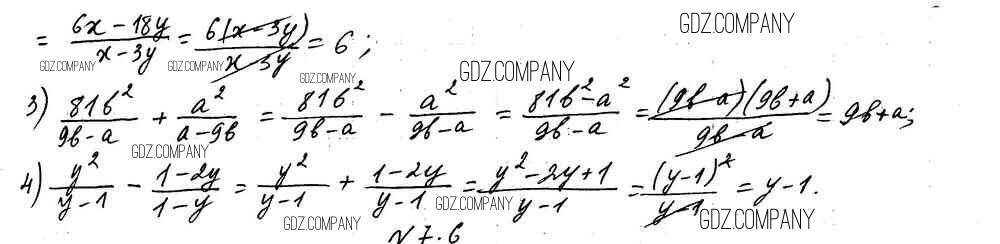 = (6x - 18y)/(x - 3y) = 6(x - 3y)/(x - 3y) = 6;
GDZ.COMPANY
GDZ.COMPANY GDZ.COMPANY GDZ.COMPANY GDZ.COMPANY
3) 81b²/(9b - a) + a²/(a - 9b) = 81b²/(9b - a) - a²/(9b - a) = (81b² - a²)/(9b - a) = (9b - a)(9b + a)/(9b - a) = 9b + a;
GDZ.COMPANY
4) y²/(y - 1) - (1 - 2y)/(1 - y) = y²/(y - 1) + (1 - 2y)/(y - 1) = (y² - 2y + 1)/(y - 1) = (y - 1)²/(y - 1) = y - 1.
GDZ.COMPANY GDZ.COMPANY GDZ.COMPANY
№ 7.6